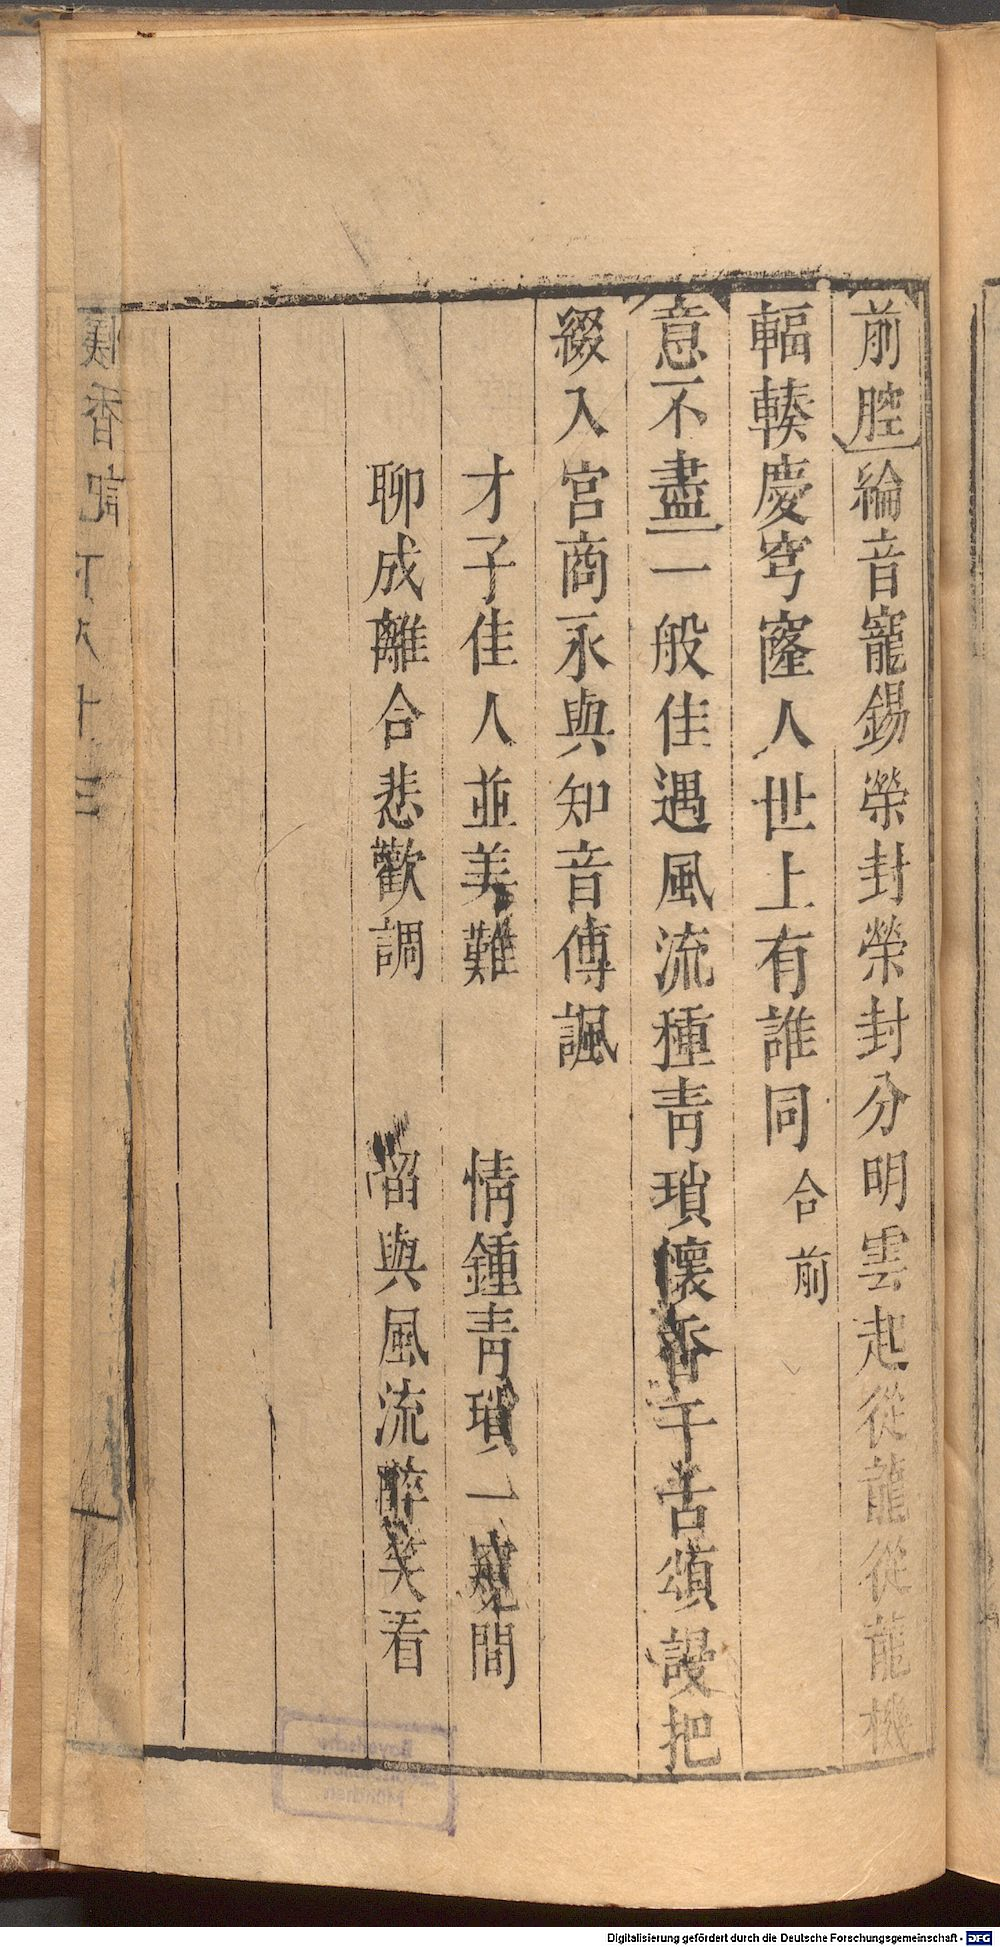 前腔綸音寵錫榮封榮封分明雲起從龍從龍機
輻輳慶穹窿人世上有誰同合前
意不盡一般佳遇風流種青瑣懷香千舌頌謾把
綴入宮商永與知音傳諷
才子佳人並美難　情鍾青瑣一窺間
聊成離合悲歡調　留與風流醉笑看
香記
Digitalisierung gefördert durch die Deutsche Forschungsgemeinschaft - DFG